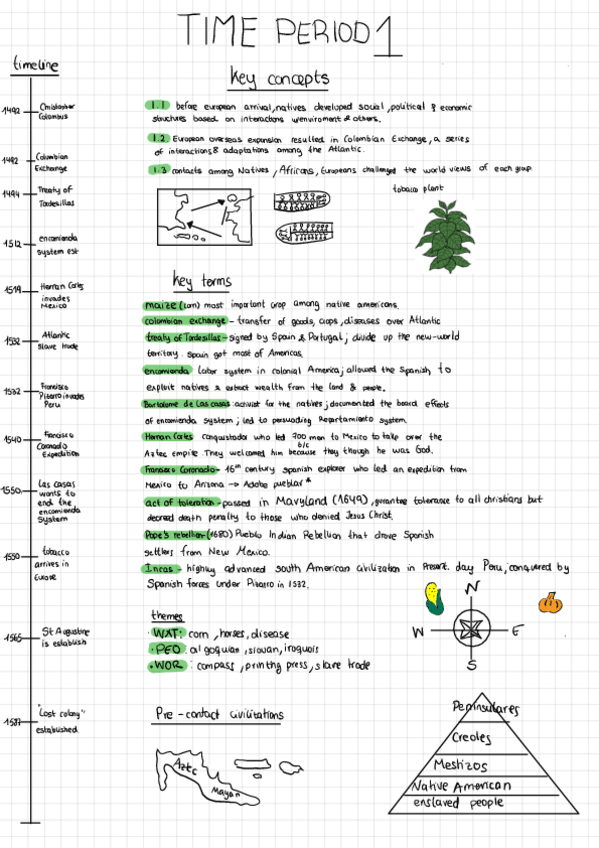 TIME PERIOD 1
timeline
1492
Christopher
Colombus
1492
Columbian
Exchange
1494
Treaty of
Tordesillas
1512
encomienda
system est
1519
Hernan Cortes
invades
Mexico
1532
Atlantic
slave trade
1532
Francisco
Pizarro invades
Peru
1540
Francisco
Coronado
Expedition
1550
Las casas
wants to
end the
encomienda
System
1550
tobacco
arrives in
Europe
1565
St Augustine
is establish
1587
"Lost colony"
established
key concepts
1.1 before european arrival, natives developed social, political & economic
structures based on interactions w environment & others.
1.2 European overseas expansion resulted in Colombian Exchange, a series
of interactions & adaptations among the Atlantic.
1.3 contacts among Natives, Africans, Europeans challenged the world views of each group
tobacco plant
key terms
maize (corn) most important crop among native americans.
colombian exchange - transfer of goods, crops, diseases over Atlantic
treaty of Tordesillas - signed by Spain & Portugal; divide up the new-world
territory. Spain got most of Americas.
encomienda labor system in colonial America; allowed the Spanish to
exploit natives & extract wealth from the land & people.
Bartolome de Las casas: activist for the natives; documented the board effects
of encomienda system; led to persuading Repartamiento system.
Hernan Cortes conquistador who led 700 men to Mexico to take over the
Aztec empire. They welcomed him b/c because they though he was God.
Francisco Coronado - 16th century spanish explorer who led an expedition from
Mexico to Arizona → Adobe pueblar*
act of toleration - passed in Mavyland (1649), gurantee tolerance to all christians but
decreed death penalty to those who denied Jesus Christ.
Pope's rebellion (1680) Pueblo Indian Rebellion that drove Spanish
settlers from New Mexico.
Incas - highly advanced south American civilization in present. day Peru, conquered by
Spanish forces under Pizarro in 1532.
themes
• WXT: corn, horses, disease
• PEO: algoquan, siouan, iroquois
• WOR: compass, printing press, slave trade
N
W
E
S
Pre-contact Civilizations
Aztec
Mayan
Peninsulares
Creoles
Mestizos
Native American
enslaved people